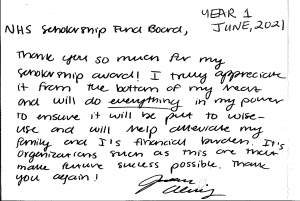 YEAR 1
JUNE, 2021
NHS Scholarship Fund Board,
Thank you so much for my
scholarship award! I truly appreciate
it from the bottom of my heart
and will do everything in my power
to ensure it will be put to wise-
use and will help alleviate my
family and I's financial burden. It's
organizations such as this are that
make future success possible. Thank
you again!